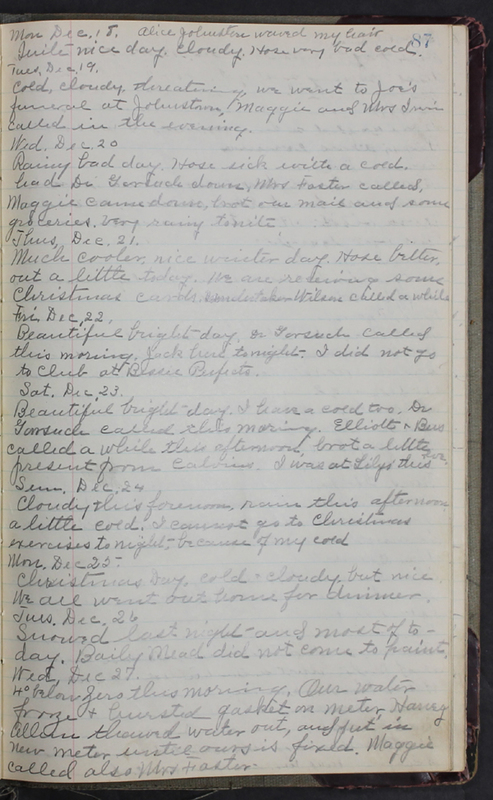 87
Mon Dec. 18. Alice Johnston waved my hair
Quite nice day, cloudy. Hose very bad cold.
Tues, Dec 19.
Cold, cloudy, threatening, we went to Joe's
funeral at Johnstown, Maggie and Mrs Irwin
called in the evening.
Wed. Dec. 20
Rainy bad day. Hose sick with a cold.
had Dr Gorsuch down, Mrs Foster called,
Maggie came down, brot our mail and some
groceries. Very rainy tonite.
Thus, Dec. 21.
Much cooler, nice winter day. Hose better,
out a little today. We are receiving some
Christmas cards. Undertaker Wilson called a while
Fri Dec, 22.
Beautiful bright day. Dr Gorsuch called
this morning. Jack here tonight. I did not go
to Club at Bessie
Sat. Dec, 23.
Beautiful bright day. I have a cold too. Dr
Gorsuch called this morning. Elliott &
called a while this afternoon, brot a little
present from I was at Lily's this
Sun. Dec, 24
Cloudy this forenoon, rain this afternoon
a little cold. I cannot go to Christmas
exercises tonight, because of my cold
Mon. Dec 25-
Christmas Day. cold - cloudy but nice
We all went out home for dinner.
Tues. Dec. 26
Snowed last night and most of to-
day. Baily Mead did not come to paint.
Wed, Dec 27.
4° below zero this morning. Our water
froze & bursted gasket on meter. Harvey
Allen thawed water out, and put in
new meter until ours is fixed. Maggie
called also Mrs Foster.